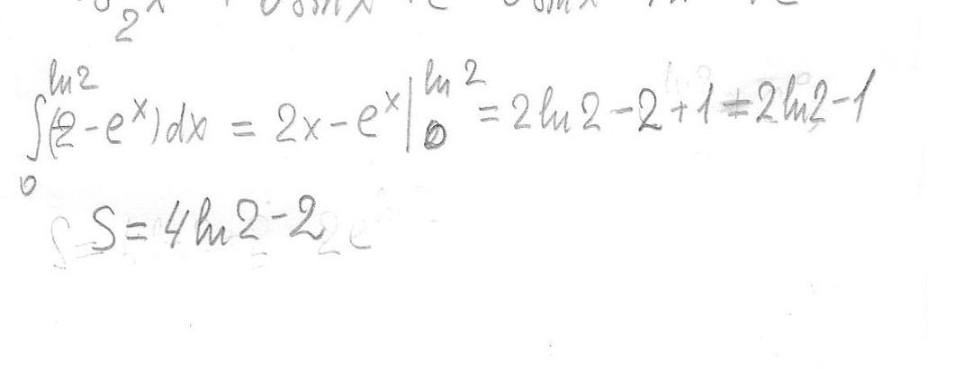 2
ln2
∫(2-eˣ)dx = 2x-eˣ|₀^{ln 2} = 2ln2-2+1=2ln2-1
0
S=4ln2-2